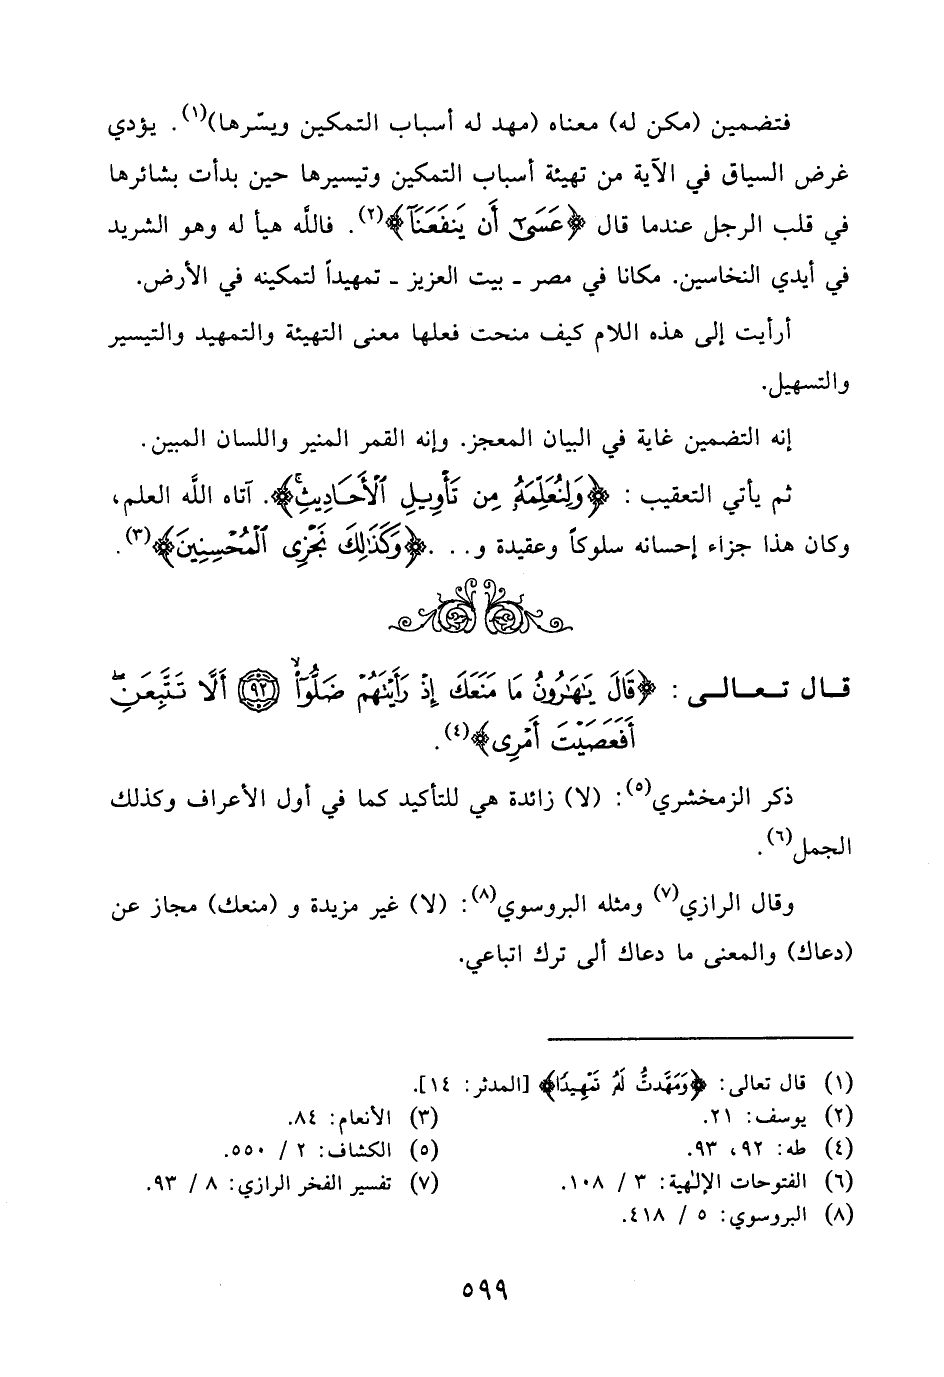 فتضمين (مكن له) معناه (مهد له أسباب التمكين ويسّرها)(١). يؤدي
غرض السياق في الآية من تهيئة أسباب التمكين وتيسيرها حين بدأت بشائرها
في قلب الرجل عندما قال ﴿عَسَىٰٓ أَن يَنفَعَنَآ﴾(٢). فاللَّه هيأ له وهو الشريد
في أيدي النخاسين. مكانا في مصر ـ بيت العزيز ـ تمهيداً لتمكينه في الأرض.
أرأيت إلى هذه اللام كيف منحت فعلها معنى التهيئة والتمهيد والتيسير
والتسهيل.
إنه التضمين غاية في البيان المعجز. وإنه القمر المنير واللسان المبين.
ثم يأتي التعقيب : ﴿وَلِنُعَلِّمَهُۥ مِن تَأْوِيلِ ٱلْأَحَادِيثِۚ﴾. آتاه اللَّه العلم،
وكان هذا جزاء إحسانه سلوكاً وعقيدة و... .﴿وَكَذَٰلِكَ نَجْزِى ٱلْمُحْسِنِينَ﴾(٣).
قال تعالى : ﴿قَالَ يَٰهَٰرُونُ مَا مَنَعَكَ إِذْ رَأَيْتَهُمْ ضَلُّوٓا۟ۙ ﴿٩٢﴾ أَلَّا تَتَّبِعَنِۖ
أَفَعَصَيْتَ أَمْرِى﴾(٤).
ذكر الزمخشري(٥): (لا) زائدة هي للتأكيد كما في أول الأعراف وكذلك
الجمل(٦).
وقال الرازي(٧) ومثله البروسوي(٨): (لا) غير مزيدة و (منعك) مجاز عن
(دعاك) والمعنى ما دعاك ألى ترك اتباعي.
(١) قال تعالى: ﴿وَمَهَّدتُّ لَهُۥ تَمْهِيدًا﴾ [المدثر: ١٤].
(٢) يوسف: ٢١. (٣) الأنعام: ٨٤.
(٤) طه: ٩٢، ٩٣. (٥) الكشاف: ٢ / ٥٥٠.
(٦) الفتوحات الإلٰهية: ٣ / ١٠٨. (٧) تفسير الفخر الرازي: ٨ / ٩٣.
(٨) البروسوي: ٥ / ٤١٨.
٥٩٩